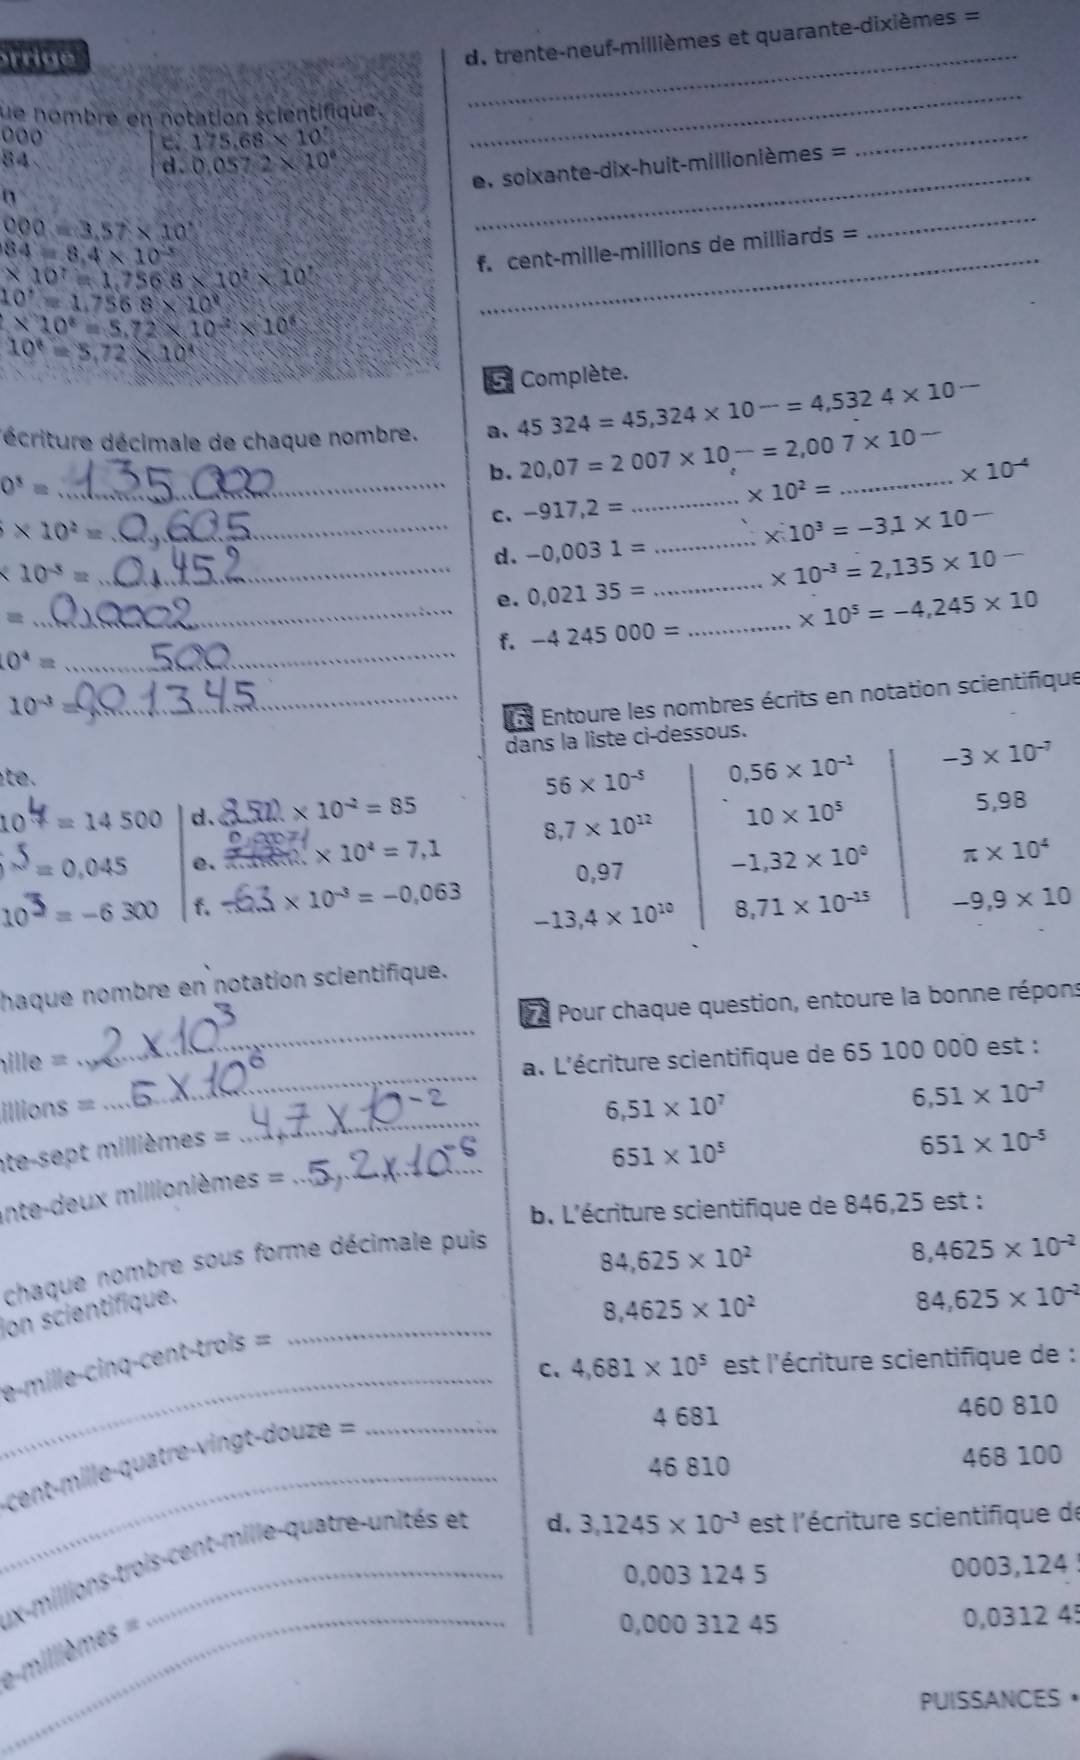 ue nombre en notation scientifique.
000
c. 175,68 × 10⁷
84
d. 0,057 2 × 10⁶
n
000 = 3,57 ×
84 = 8,4 ×
× 10⁷ = 1,756 8 × 10² × 10⁷
= 1,756 8 × 10⁹
× 10⁶ = 5,72 × 10⁻² × 10⁶
10⁶ = 5,72 × 10⁴
écriture décimale de chaque nombre.
= 135 000
× 10² = 0,605
10⁻⁵ = 0,452
= 0,0002
0⁴ = 500
10⁻³ = 1345
te.
10 4 = 14 500
d. 8 500 × 10⁻² = 85
= 0,045
e. 0,00071 × 10⁴ = 7,1
10 3 = -6 300
f. -63 × 10⁻³ = -0,063
haque nombre en notation scientifique.
ille = 2 × 10³
illions = 5 × 10⁶
te-sept millièmes = 4,7 × 10⁻²
nte-deux millionièmes = 5,2 × 10⁻⁵
chaque nombre sous forme décimale puis
ion scientifique.
e-mille-cinq-cent-trois =
-cent-mille-quatre-vingt-douze =
ux-millions-trois-cent-mille-quatre-unités et
e-millièmes =
d. trente-neuf-millièmes et quarante-dixièmes =
e. soixante-dix-huit-millionièmes =
f. cent-mille-millions de milliards =
5 Complète.
a. 45 324 = 45,324 × 10 ... = 4,532 4 × 10 ...
b. 20,07 = 2 007 × 10 ... = 2,00 7 × 10 ...
c. -917,2 = ............ × 10² = ............ × 10⁻⁴
d. -0,003 1 = ............ × 10³ = -3,1 × 10 ...
e. 0,021 35 = ............ × 10⁻³ = 2,135 × 10 ...
f. -4 245 000 = ............ × 10⁵ = -4,245 × 10
6 Entoure les nombres écrits en notation scientifique
dans la liste ci-dessous.
56 × 10⁻⁵
0,56 × 10⁻¹
-3 × 10⁻⁷
8,7 × 10¹²
10 × 10⁵
5,98
0,97
-1,32 × 10⁰
π × 10⁴
-13,4 × 10¹⁰
8,71 × 10⁻¹⁵
-9,9 × 10
7 Pour chaque question, entoure la bonne répons
a. L'écriture scientifique de 65 100 000 est :
6,51 × 10⁷
6,51 × 10⁻⁷
651 × 10⁵
651 × 10⁻⁵
b. L'écriture scientifique de 846,25 est :
84,625 × 10²
8,4625 × 10⁻²
8,4625 × 10²
84,625 × 10⁻²
c. 4,681 × 10⁵ est l'écriture scientifique de :
4 681
460 810
46 810
468 100
d. 3,1245 × 10⁻³ est l'écriture scientifique de
0,003 124 5
0003,124 5
0,000 312 45
0,0312 45
PUISSANCES •